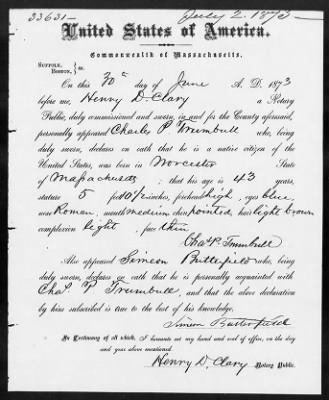 33631 — July 2. 1873 —
United States of America.
Commonwealth of Massachusetts.
SUFFOLK, } ss.
BOSTON,
On this 30th day of June A. D. 1873
before me, Henry D. Clary a Notary
Public, duly commissioned and sworn, in and for the County aforesaid,
personally appeared Charles P. Trumbull who, being
duly sworn, declares on oath that he is a native citizen of the
United States, was born in Worcester State
of Massachusetts ; that his age is 43 years,
stature 5 feet 10 1/2 inches, forehead high, eyes blue,
nose Roman, mouth medium chin pointed, hair light brown
complexion light, face thin
Chas P. Trumbull
Also appeared Simeon Butterfield who, being
duly sworn, declares on oath that he is personally acquainted with
Chas P Trumbull, and that the above declaration
by him subscribed is true to the best of his knowledge.
Simeon Butterfield
In Testimony of all which, I hereunto set my hand and seal of office, on the day
and year above mentioned.
Henry D. Clary Notary Public.